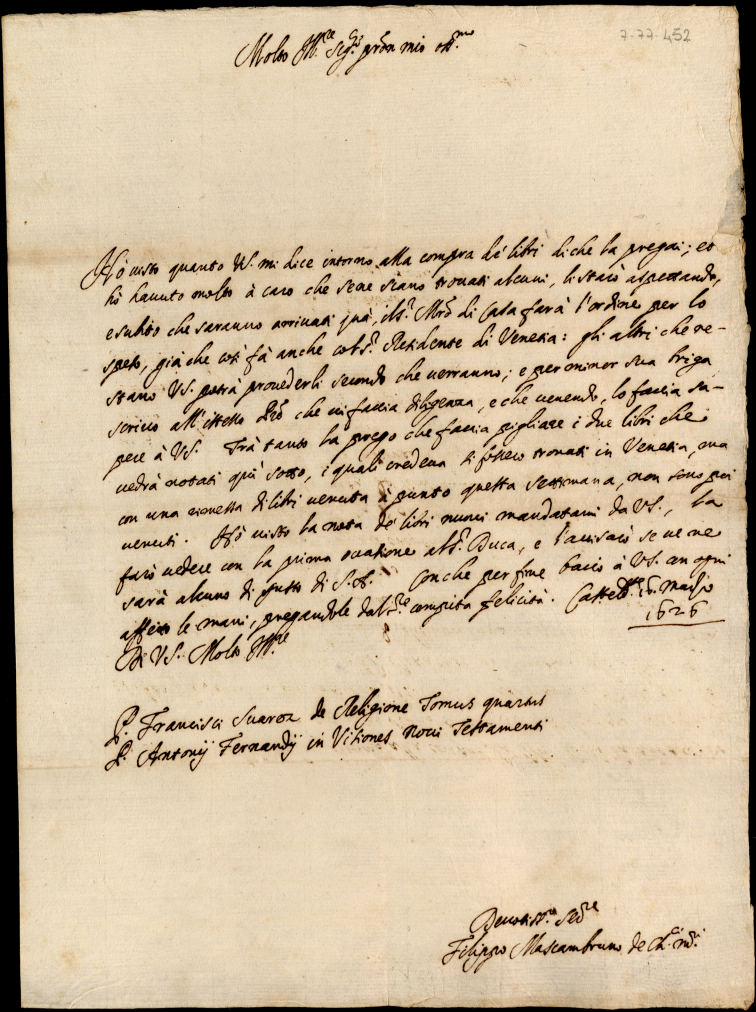 7-77-452
Molto Ill.re Sig.r pron mio oss.mo
Hò visto quanto VS. mi dice intorno alla compra de' libri di che la pregai; et
hò hauuto molto à caro che sene siano trouati alcuni, li starò aspettando,
e subito che saranno arriuati quà, il S.r Mrõ di Casa farà l'ordine per lo
speso, già che così fà anche col S.r Residente di Venetia: gli altri che re-
stano VS. potrà prouederli secondo che uerranno; e per minor sua briga
scriuo all'istesso che ui faccia diligenza, e che uenendo, lo faccia sa-
pere à VS. Trà tanto la prego che faccia pigliare i due libri che
uedrà notati quì sotto, i quali credeua si fossero trouati in Venetia, ma
con una rimessa di libri uenuta à punto questa settimana, non sono poi
uenuti. Hò uisto la nota de' libri nuoui mandatami da VS., la
farò uedere con la prima occasione al S.r Duca, e l'auisarò se ue ne
sarà alcuno di gusto di S.A. Con che per fine bacio à VS. con ogni
affetto le mani, pregandole dal S.re compita felicità. 16. Maggio
1626
Di VS. Molto Ill.re
P. Francisci Suarez de Religione Tomus quartus
P. Antonij Fernandij in Visiones Noui Testamenti
Deuotiss.o Ser.re
Filippo Mascambruno de